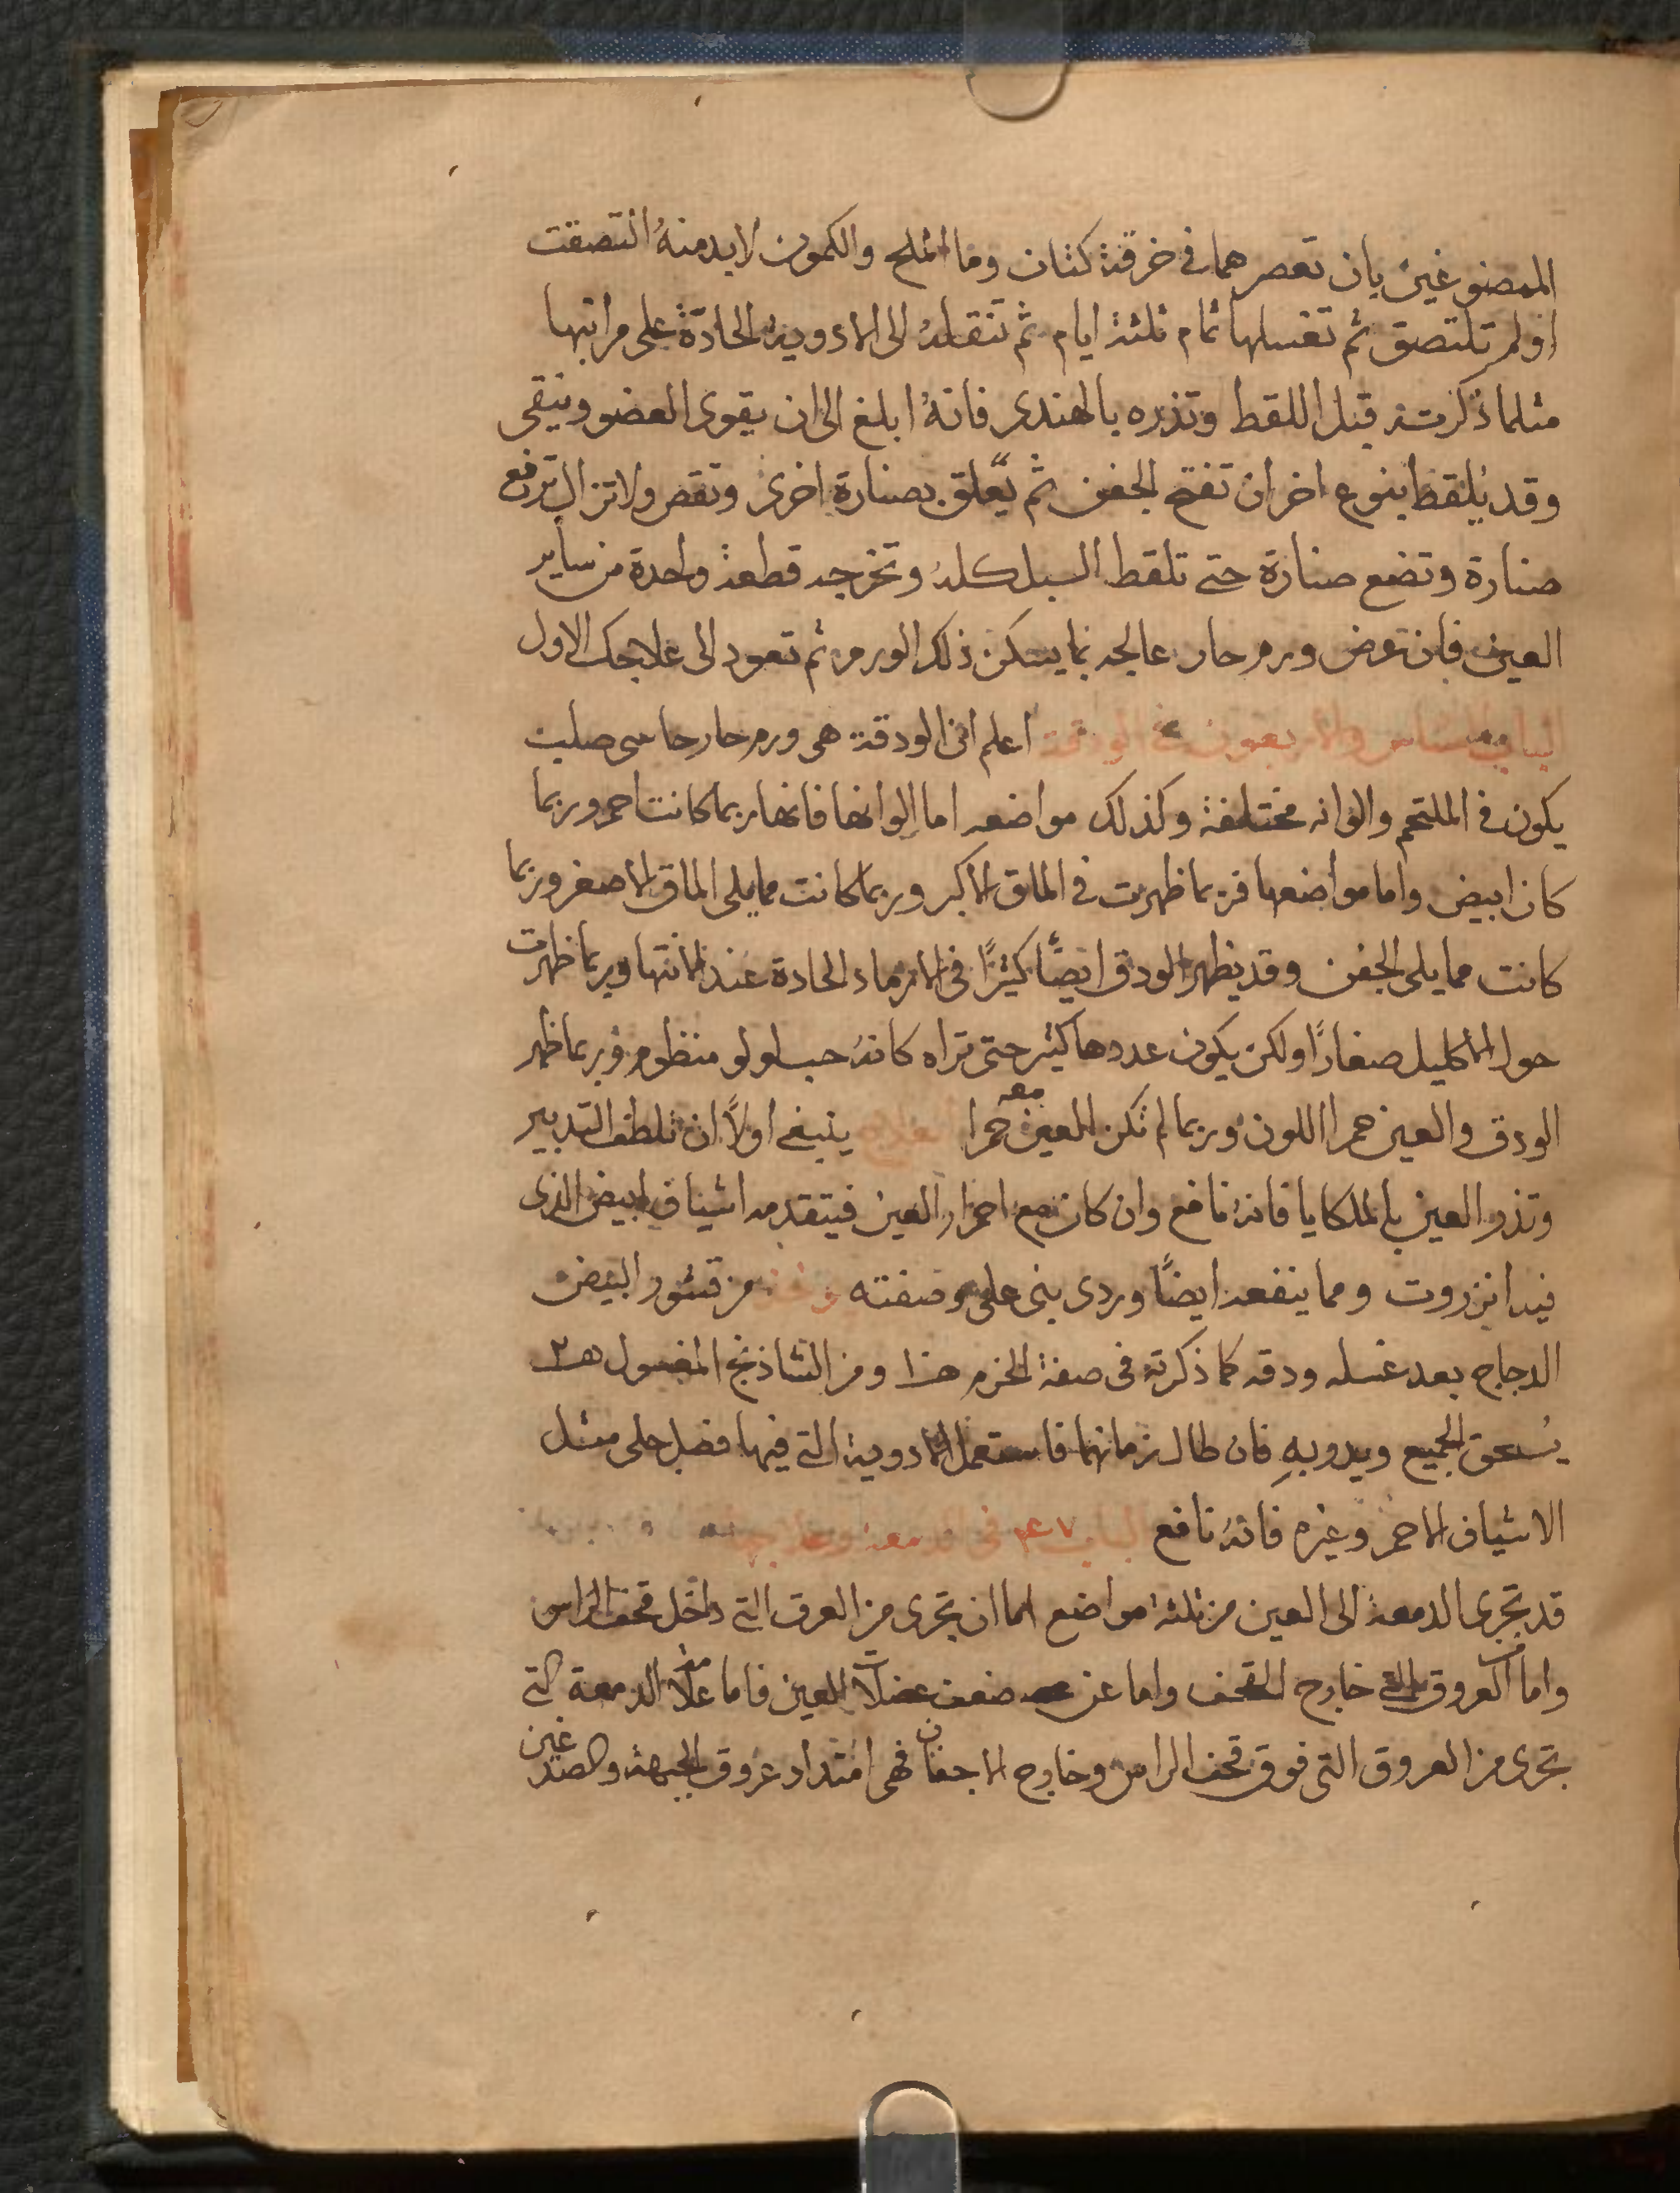 الممضوغين بان تعصرهما في خرقة كتان وما الملح والكمون لابد منه التصقت
او لم تلتصق ثم تغسلها تمام ثلثة ايام ثم تنقله الى الادوية الحادّة على مراتبها
مثلما ذكرت قبل اللقط وتذره بالهندى فانهُ ابلغ الى ان يقوى العضو وينقى
وقد يُلقط بنوع اخر ان تفتح الجفن ثم يعّلق بصنارة اخرى وتقص ولا تزال ترفع
صنارة وتضع صنارة حتى تلقط السبل كلهُ وتخرجه قطعة واحدة من ساير
العين فان عرض ورم حار عالجه بما يسكن ذلك الورم ثم تعود الى علاجك الاول
الباب السادس والاربعون في الودقة اعلم ان الودقة هي ورم حار جاسى صلب
يكون في الملتحم والوانه مختلفة وكذلك مواضعه اما الوانها فانها ربما كانت احمر وربما
كان ابيض واما مواضعها فربما ظهرت في الماق الاكبر وربما كانت مما يلى الماق الاصغر وربما
كانت مما يلى الجفن وقد يظهر الودق ايضًا كثيرًا في الارماد الحادة عند انتها وربما ظهرت
حول الاكليل صغارًا ولكن يكون عددها كثير حتى تراه كانهُ حب لولو منظوم وربما ظهر
الودق والعين حمرا اللون وربما لم تكن العين معه حمرا العلاج ينبغي اولاً ان تلطف التدبير
وتذر العين بالملكايا فانهُ نافع وان كان مع احمرار العين فيتقدمه اشياف ابيض الذى
فيه انزروت ومما ينفعه ايضًا وردى ينى على وصفته يوخذ من قشور البيض
الدجاج بعد غسله ودقه كما ذكرته في صفة الخرم هذا ومن الشاذنج المغسول
يُسحق الجميع ويدر بهِ فان طال زمانهما فاستعمل الادوية التي فيها فضل جلى مثل
الاشياف الاحمر وغيره فانهُ نافع الباب ٤٧ في الدمعة وعلاجها
قد تجرى الدمعة الى العين من ثلثة مواضع اما ان تجرى من العرق التي داخل قحف الراس
واما العروق التي خارج القحف واما عن ضعف عضلات العين فاما علامة الدمعة التي
تجرى من العروق التي فوق قحف الراس وخارج الاجفان فهي امتداد عروق الجبهة والصدغين